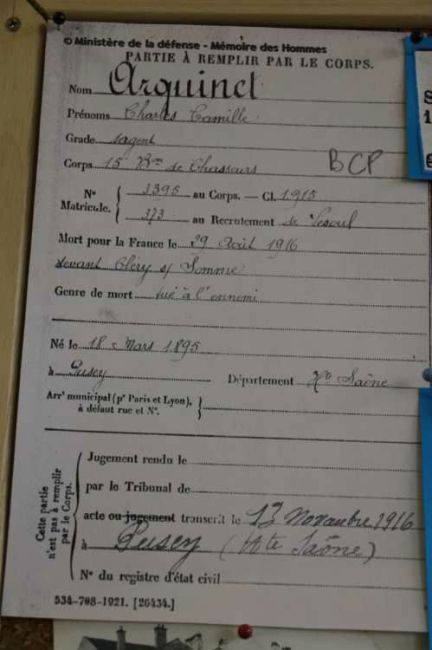 © Ministère de la défense - Mémoire des Hommes
PARTIE À REMPLIR PAR LE CORPS.
Nom Arquinet
Prénoms Charles Camille
Grade sagent
Corps 15 Bon de Chasseurs BCP
No Matricule. { 3395 au Corps. — Cl. 1915
373 au Recrutement de Vesoul
Mort pour la France le 29 Août 1916
devant Cléry s/ Somme
Genre de mort tué à l'ennemi
Né le 18 Mars 1895
à Pusey Département Hte Saône
Arrt municipal (pr Paris et Lyon), à défaut rue et No. }
Cette partie n'est pas à remplir par le Corps.
Jugement rendu le
par le Tribunal de
acte ou jugement transcrit le 13 Novembre 1916
à Pusey (Hte Saône)
No du registre d'état civil
534-708-1921. [26434.]